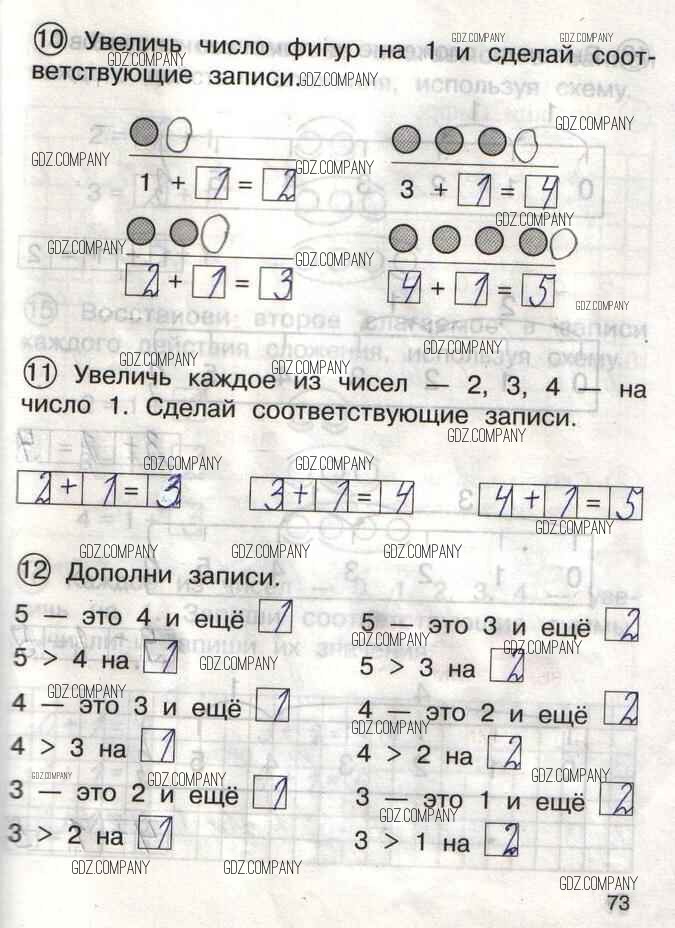 10 Увеличь число фигур на 1 и сделай соот-
ветствующие записи.
1 + 1 = 2
3 + 1 = 4
2 + 1 = 3
4 + 1 = 5
11 Увеличь каждое из чисел — 2, 3, 4 — на
число 1. Сделай соответствующие записи.
2 + 1 = 3 3 + 1 = 4 4 + 1 = 5
12 Дополни записи.
5 — это 4 и ещё 1
5 > 4 на 1
4 — это 3 и ещё 1
4 > 3 на 1
3 — это 2 и ещё 1
3 > 2 на 1
5 — это 3 и ещё 2
5 > 3 на 2
4 — это 2 и ещё 2
4 > 2 на 2
3 — это 1 и ещё 2
3 > 1 на 2
73
GDZ.COMPANY